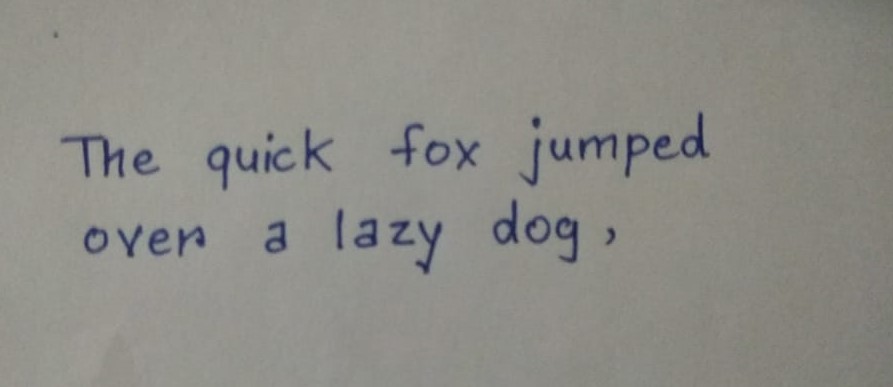 The quick fox jumped
over a lazy dog,